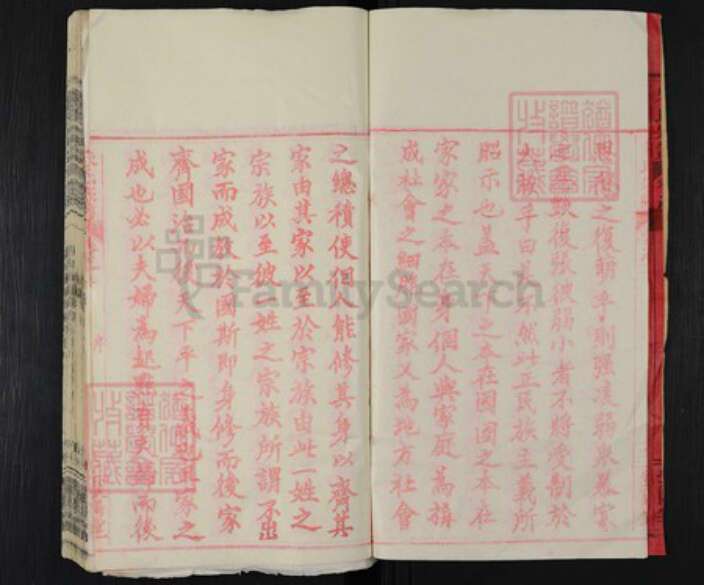 之復朝乎則强凌弱眾暴寡
彼弱小者不將受制於
乎曰 然此正民族主義所
昭示也蓋天下之本在國國之本在
家家之本在身個人與家庭為構
成社會之細 國家又為地方社會
之總積使個人能修其身以齊其
家由其家以至於宗族由此一姓之
宗族以至彼一姓之家族所謂不出
家而成教於國斯即身修而後家
齊國治 天下平之 家之
成也必以夫婦為起點 有夫婦而後
FamilySearch